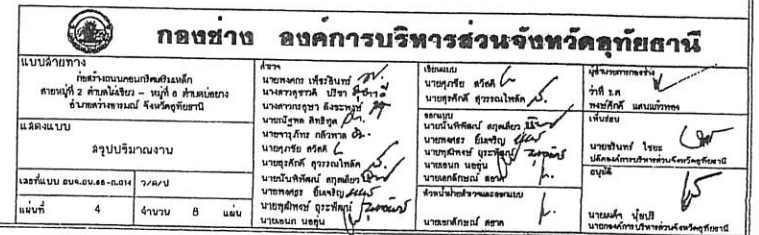 กองช่าง องค์การบริหารส่วนจังหวัดอุทัยธานี
แบบสายทาง
ก่อสร้างถนนคอนกรีตเสริมเหล็ก
สายหมู่ที่ 2 ตำบลไผ่เขียว - หมู่ที่ 6 ตำบลบ่อยาง
อำเภอสว่างอารมณ์ จังหวัดอุทัยธานี
แสดงแบบ
สรุปปริมาณงาน
เลขที่แบบ อบจ.อน.66-ถ.014 ว/ด/ป
แผ่นที่ 4 จำนวน 8 แผ่น
สำรวจ
นายพงศกร
นางสาวสุชาวดี ปรีชา
นางสาวกรอุษา
นายณัฐพล สิทธิกูล
นายจารุภัทร กลัวพาล
นายศุภชัย สวัสดิ์
นายสุรศักดิ์ สุวรรณไพลัด
นายนันทิพัฒน์ สกุลเดียว
นายพงศธร ยิ้มเจริญ
นายพุฒิพงษ์ ถุระพัฒน์
นายเอนก นอขุ่น
เขียนแบบ
นายศุภชัย สวัสดิ์
นายสุรศักดิ์ สุวรรณไพลัด
ออกแบบ
นายนันทิพัฒน์ สกุลเดียว
นายพงศธร ยิ้มเจริญ
นายพุฒิพงษ์ ถุระพัฒน์
นายเอนก นอขุ่น
นายเอกลักษณ์ สยาค
หัวหน้าฝ่ายสำรวจและออกแบบ
นายเอกลักษณ์ สยาค
ผู้อำนวยการกองช่าง
ว่าที่ ร.ต.
พงษ์ศักดิ์ แสนแก้วทอง
เห็นชอบ
นายชรินทร์ ไชยะ
ปลัดองค์การบริหารส่วนจังหวัดอุทัยธานี
อนุมัติ
นายเผด็จ นุ้ยปรี
นายกองค์การบริหารส่วนจังหวัดอุทัยธานี